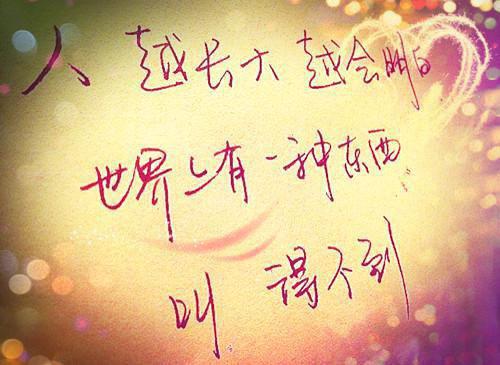 人 越长大 越会明白
世界上有一种东西
叫 得不到